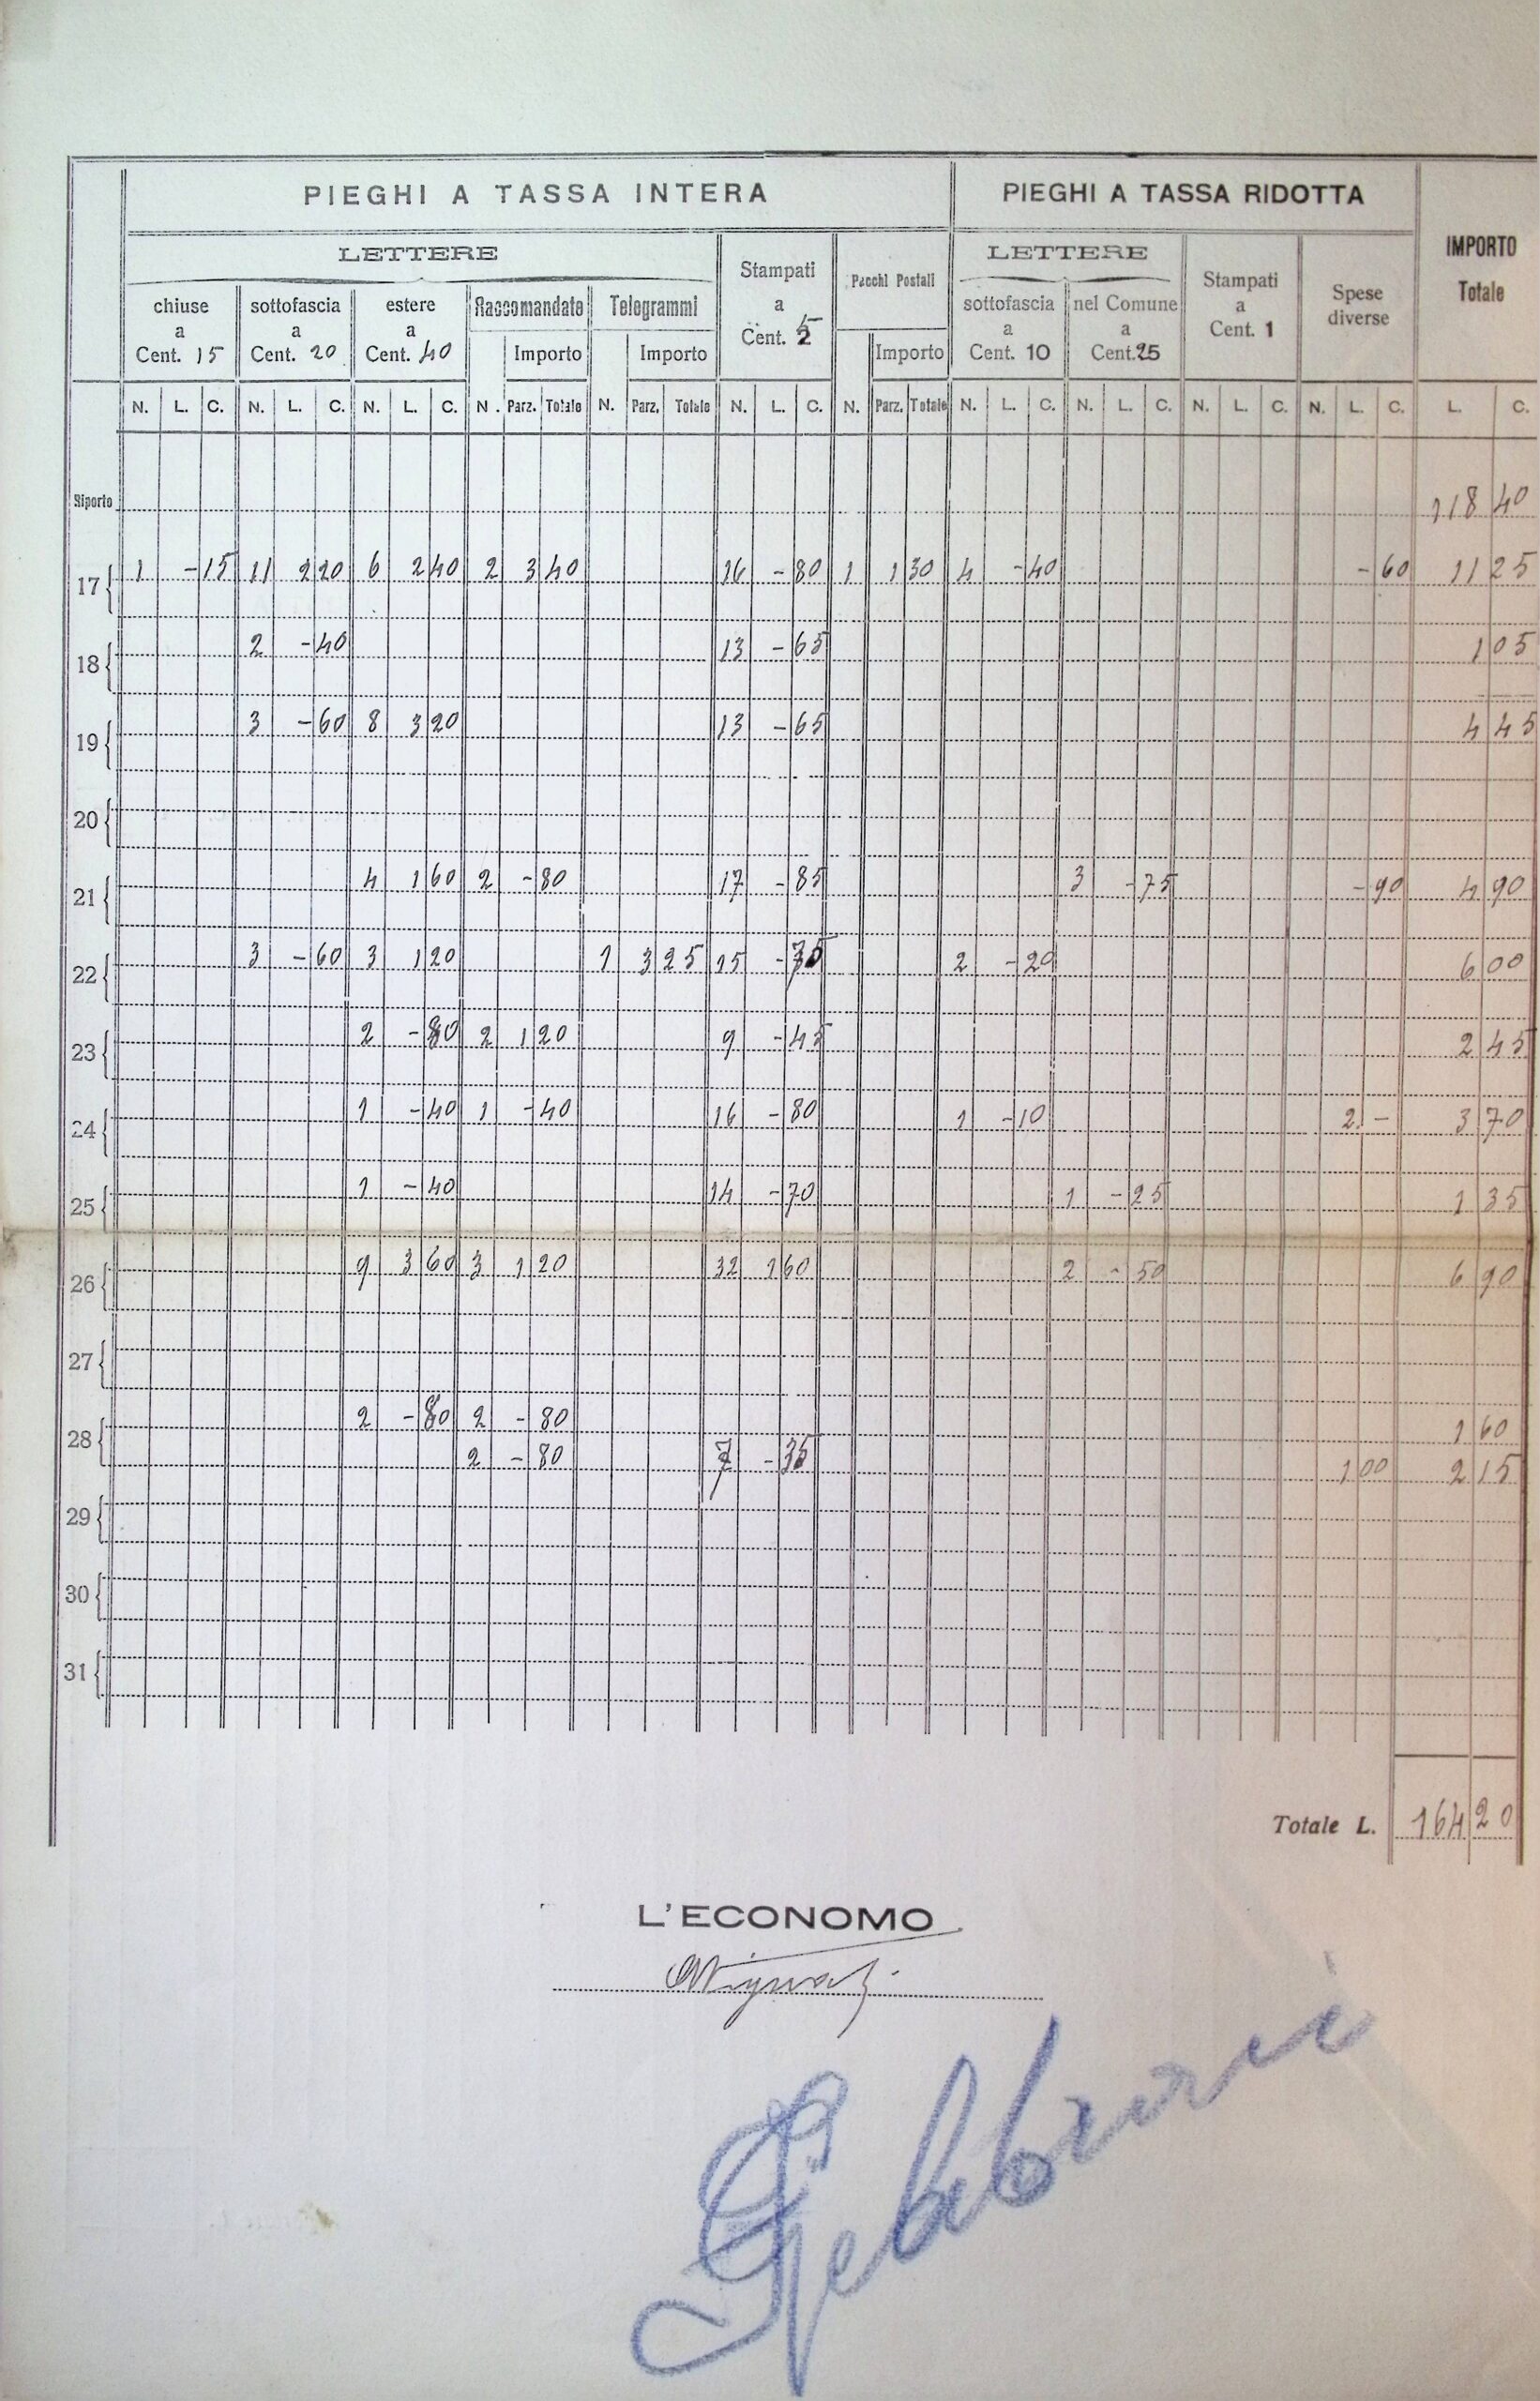 PIEGHI A TASSA INTERA PIEGHI A TASSA RIDOTTA IMPORTO Totale
LETTERE Stampati a Cent. 5 Pacchi Postali LETTERE Stampati a Cent. 1 Spese diverse
chiuse a Cent. 15 sottofascia a Cent. 20 estere a Cent. 40 Raccomandate Telegrammi sottofascia a Cent. 10 nel Comune a Cent. 25
Importo Importo Importo
N. L. C. N. L. C. N. L. C. N. Parz. Totale N. Parz. Totale N. L. C. N. Parz. Totale N. L. C. N. L. C. N. L. C. N. L. C. L. C.
Riporto 118 40
17 1 - 15 11 2 20 6 2 40 2 3 40 16 - 80 1 1 30 4 - 40 - 60 11 25
18 2 - 40 13 - 65 1 05
19 3 - 60 8 3 20 13 - 65 4 45
20
21 4 1 60 2 - 80 17 - 85 3 - 75 - 90 4 90
22 3 - 60 3 1 20 1 3 25 15 - 75 2 - 20 6 00
23 2 - 80 2 1 20 9 - 45 2 45
24 1 - 40 1 - 40 16 - 80 1 - 10 2 - 3 70
25 1 - 40 14 - 70 1 - 25 1 35
26 9 3 60 3 1 20 32 1 60 2 - 50 6 90
27
28 2 - 80 2 - 80 1 60
2 - 80 7 - 35 1 00 2 15
29
30
31
Totale L. 164 20
L'ECONOMO